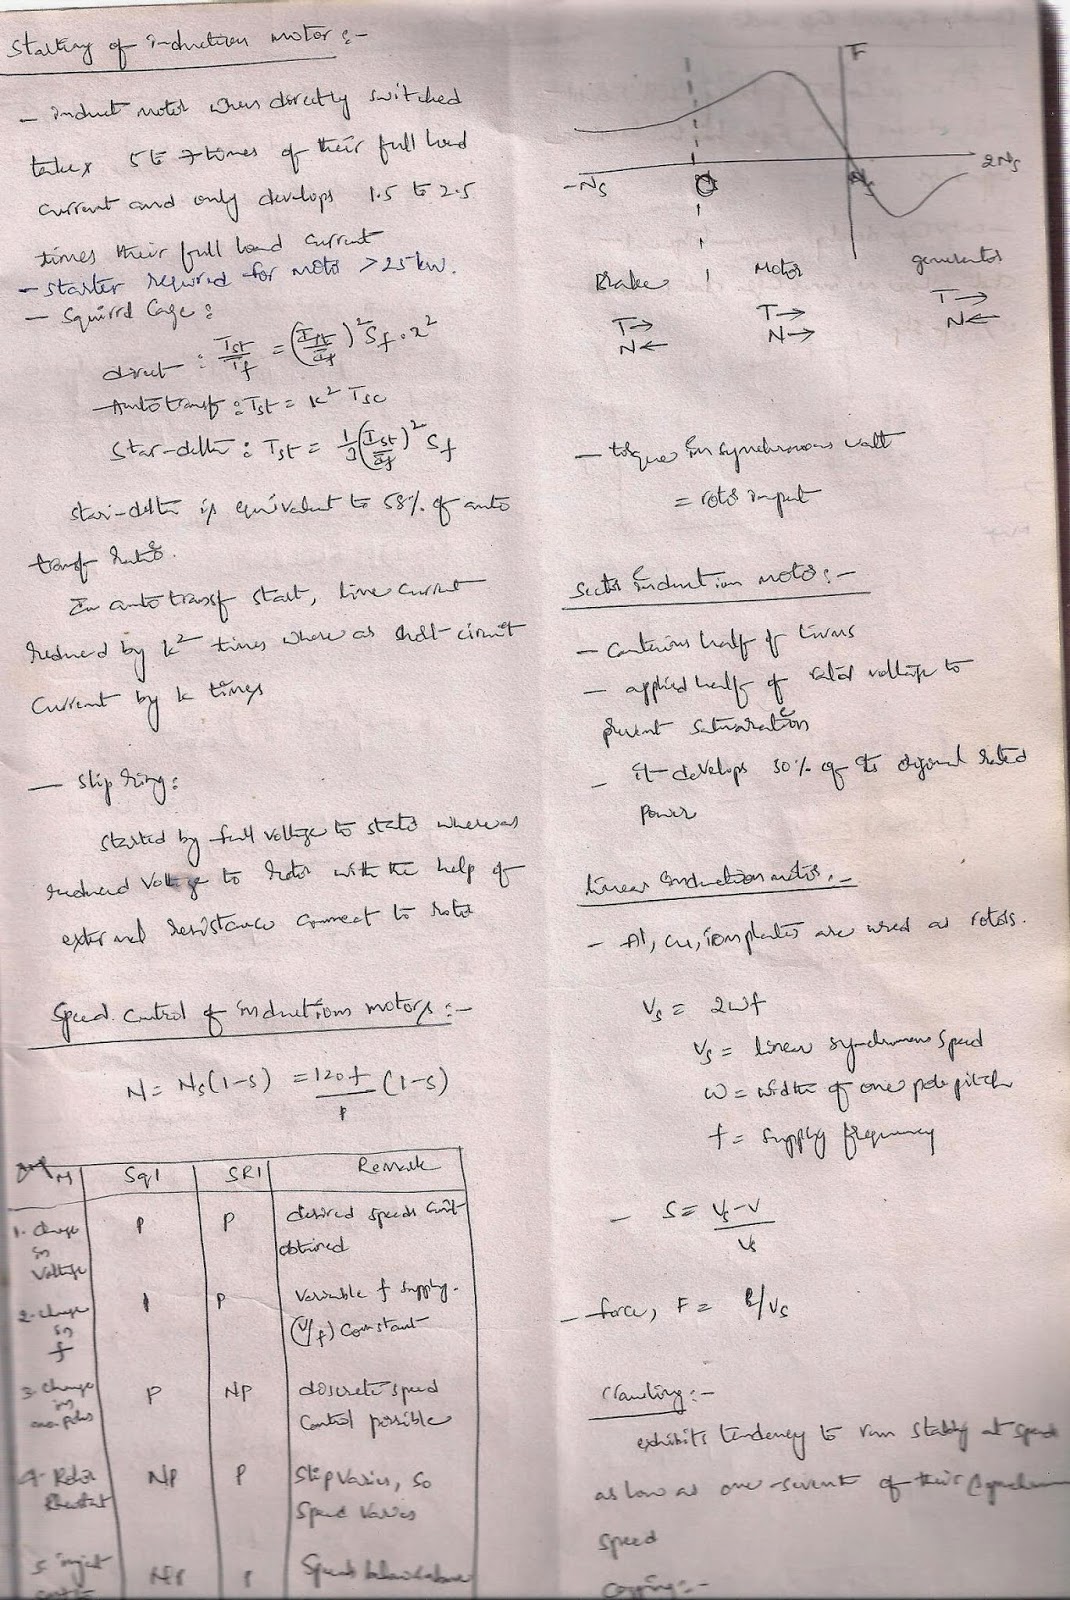 Starting of induction motor :-
- induct motor when directly switched
takes 5 to 7 times of their full load
current and only develops 1.5 to 2.5
times their full load current
- starter required for motor > 25 kW.
- Squirrel Cage :
direct : Tst/Tf = (Ist/If)² Sf . x²
Autotransf : Tst = k² Tsc
Star-delta : Tst = 1/3 (Ist/If)² Sf
Star-delta is equivalent to 58% of auto
transf ratio.
In auto transf start, line current
reduced by k² times where as short-circuit
current by k times
- slip ring :
started by full voltage to stator whereas
reduced voltage to rotor with the help of
external resistance connect to rotor
Speed control of inductions motors :-
N = Ns(1-s) = 120f/P (1-s)
M Sq1 SRI Remark
1. change in voltage P P desired speeds can't obtined
2. change in f P P variable f supply. (V/f) constant
3. change in no poles P NP discrete speed control possible
4. Rotor Rheostat NP P Slip varies, so speed varies
5. inject NP P Speeds below & above
F
-Ns O Ns 2Ns
Brake Motor generator
T→ T→ T→
N← N→ N←
- torque in synchronous watt
= rotor input
Sector induction motor :-
- contains half of turns
- applied half of rated voltage to
prevent saturation
- it develops 30% of its original rated
power
linear induction motor :-
- Al, cu, iron plates are used as rotors.
Vs = 2wf
Vs = linear synchronous speed
w = width of one pole pitch
f = supply frequency
- S = Vs-V/Vs
- force, F = P/Vs
crawling :-
exhibits tendency to run stably at speeds
as low as one-seventh of their synchronous
speed
cogging :-